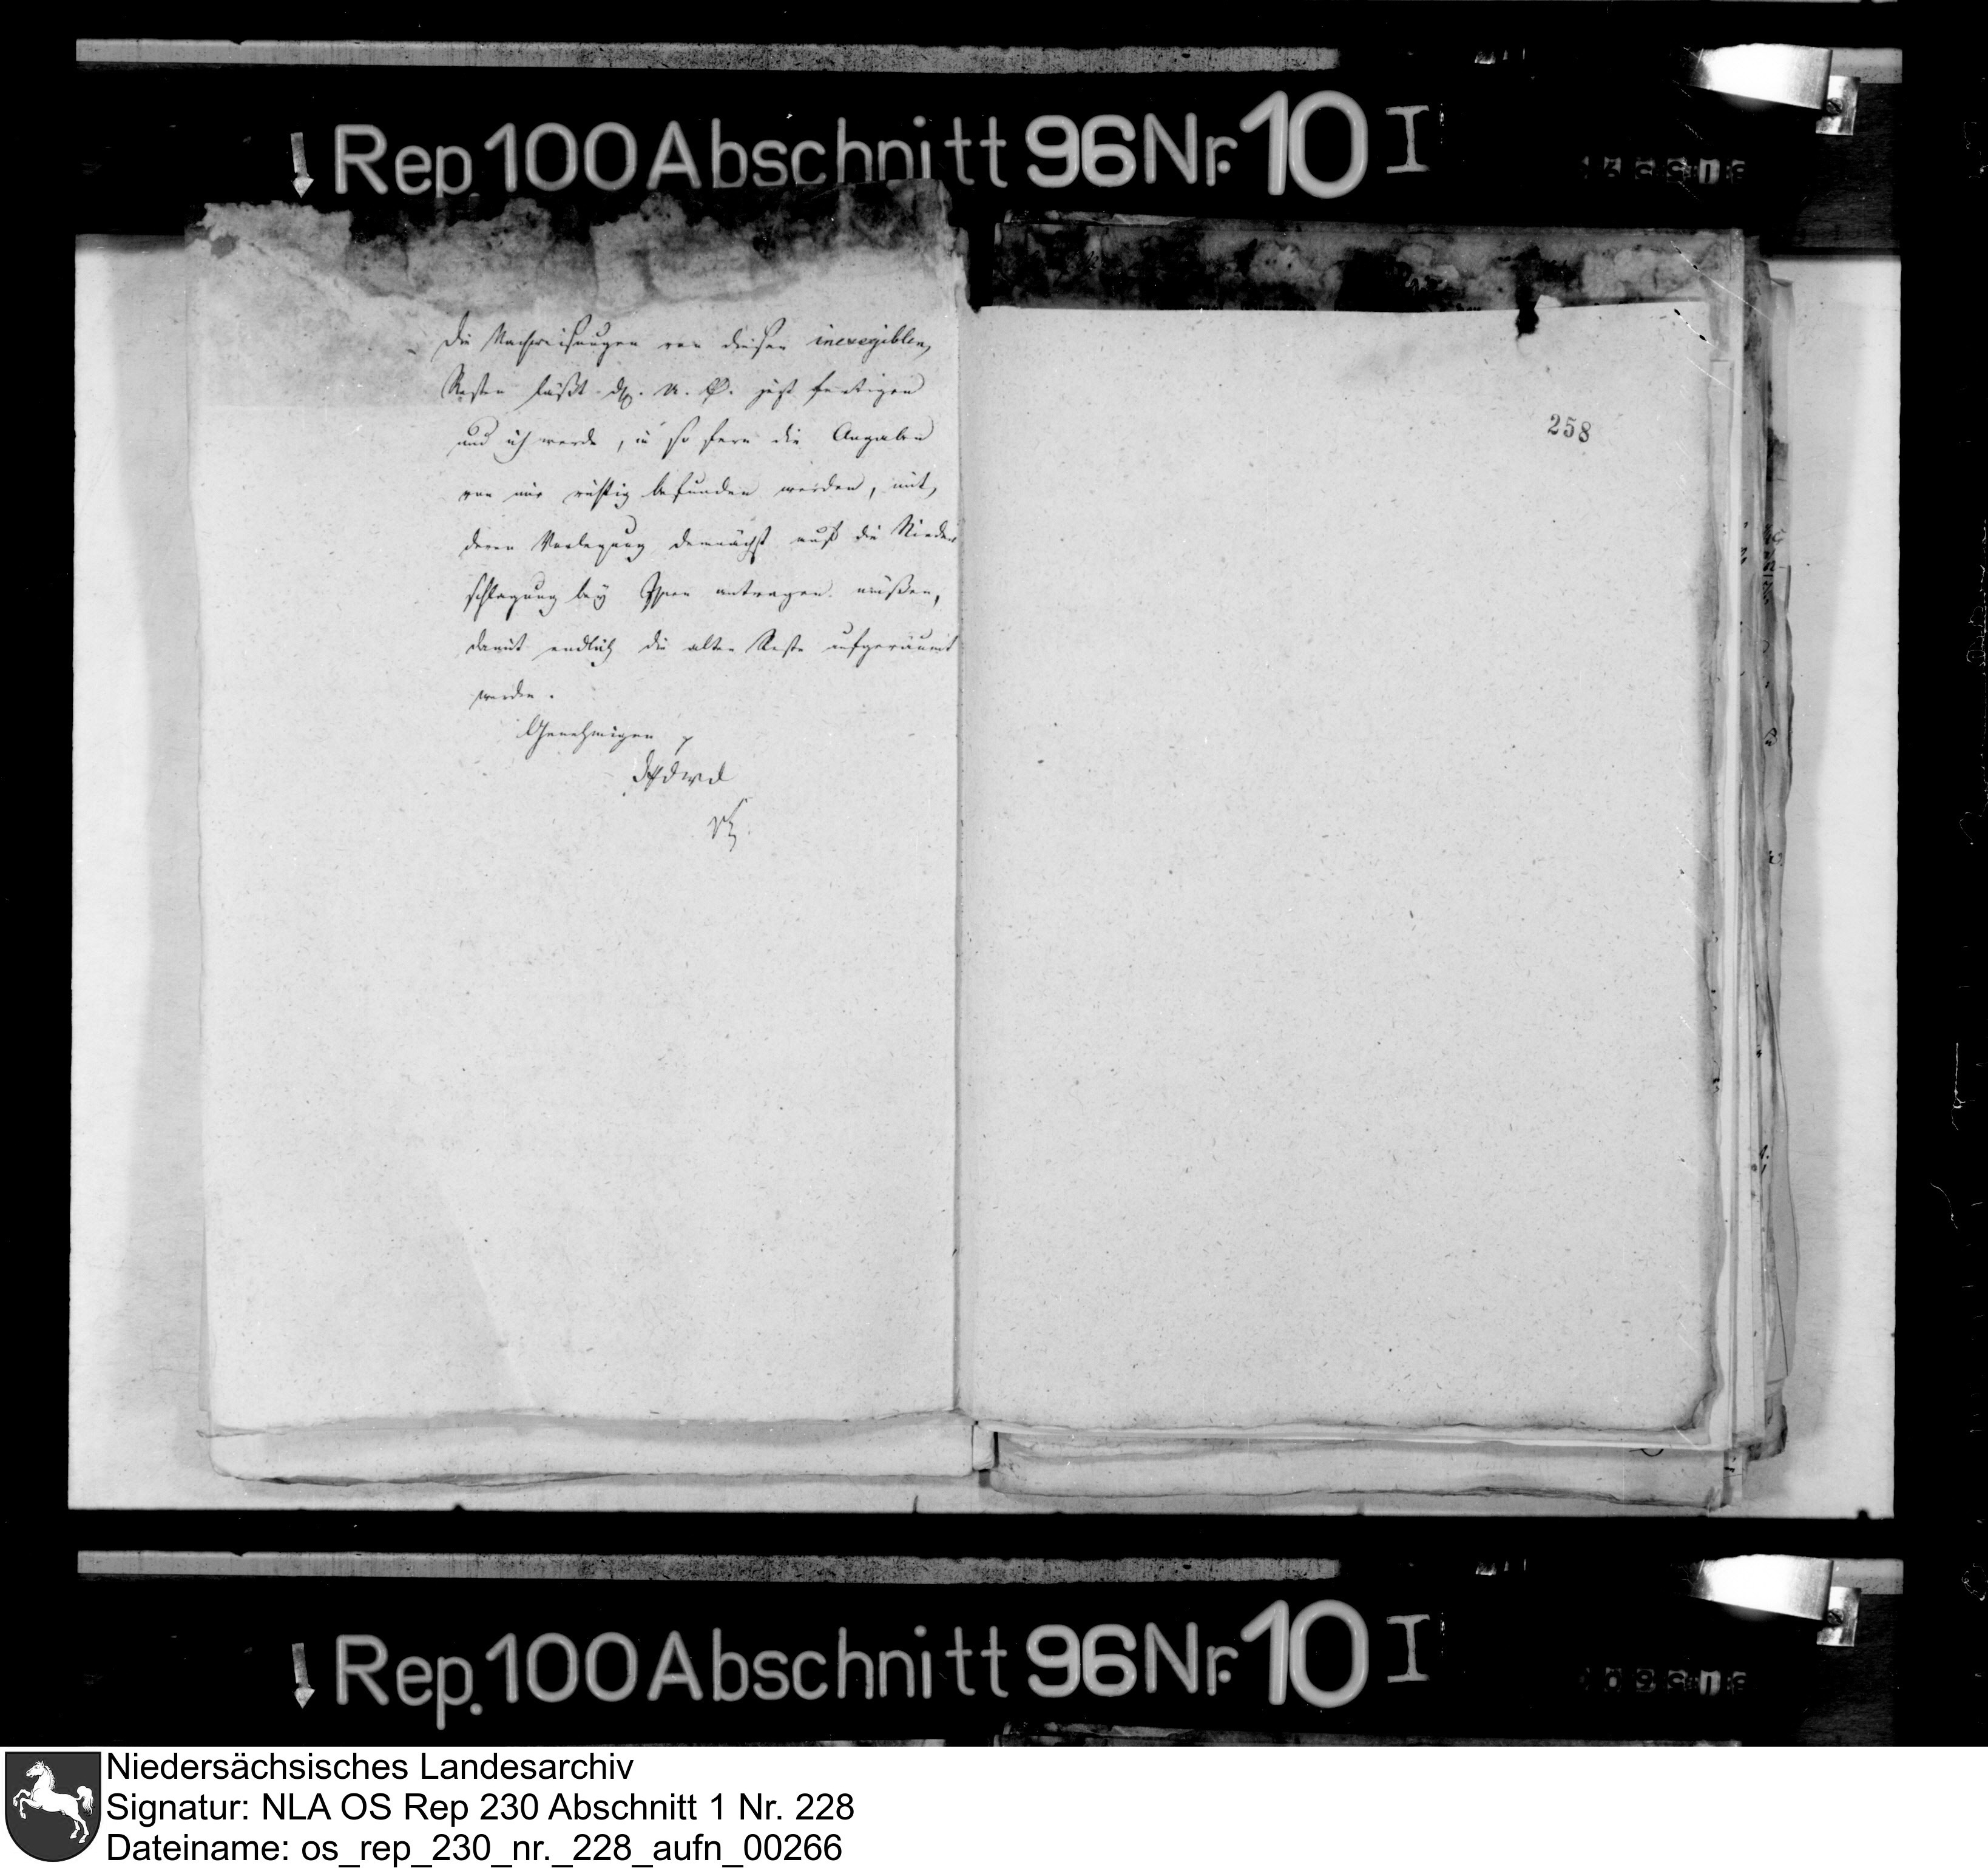 Rep. 100 Abschnitt 96 Nr. 10 I
Die Nachweisungen von diesen inexegiblen
Resten läßt jetzt fertigen
und ich werde, in so fern die Angaben
von mir richtig befunden werden, mit
deren Vorlegung demnächst auf die Nieder
schlagung bey Ihnen antragen müßen,
damit endlich die alten Reste aufgeräumt
werden.
Genehmigen
258
Rep. 100 Abschnitt 96 Nr. 10 I
Niedersächsisches Landesarchiv
Signatur: NLA OS Rep 230 Abschnitt 1 Nr. 228
Dateiname: os_rep_230_nr._228_aufn_00266